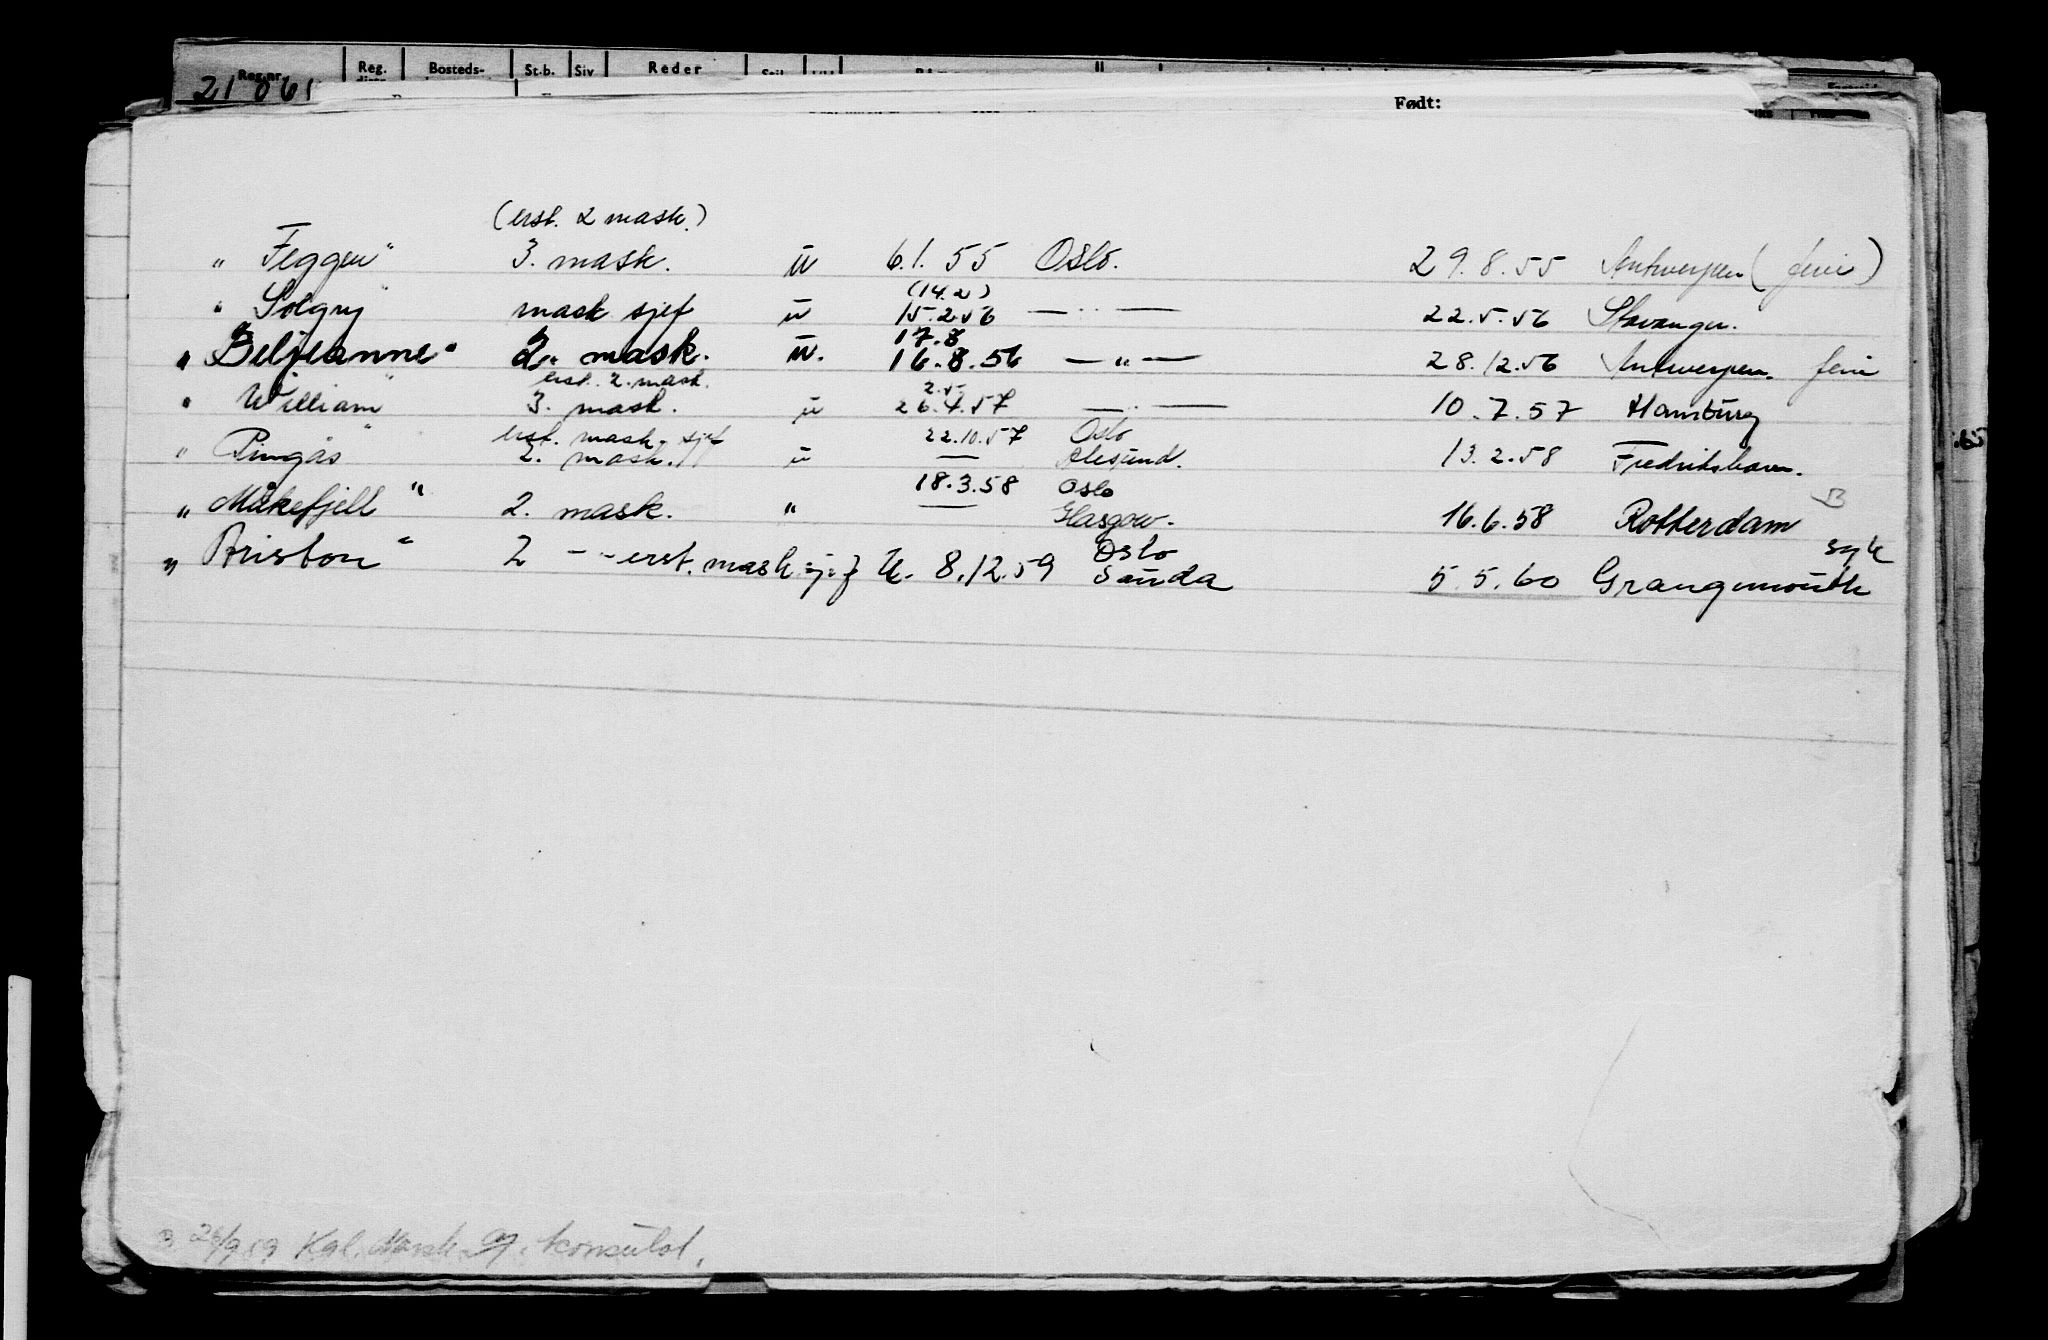 Reg.nr. Reg. Bosteds- St.b. Siv Reder
21061
Født:
(erst. 2 mask.)
" Feggen" 3. mask. u 6.1.55 Oslo. 29.8.55 Antwerpen (ferie)
(14.2)
" Solgry" mask sjef u 15.2.56 — " — 22.5.56 Stavanger.
17.8
" Beljeanne" 2. mask. u. 16.8.56 — " — 28.12.56 Antwerpen. ferie
erst. 2. mask. 2.5
" William" 3. mask. u 26.4.57 — " — 10.7.57 Hamburg
erst. mask. sjef 22.10.57 Oslo
" Ringås" 2. mask. u — Ålesund. 13.2.58 Fredrikshavn.
18.3.58 Oslo
" Måkefjell" 2. mask. " — Glasgow. 16.6.58 Rotterdam
Oslo syk
" Ariston" 2 - - erst. mask sjef u. 8.12.59 Sauda 5.5.60 Grangemouth
26/9 59 Kgl. Norsk konsulat.